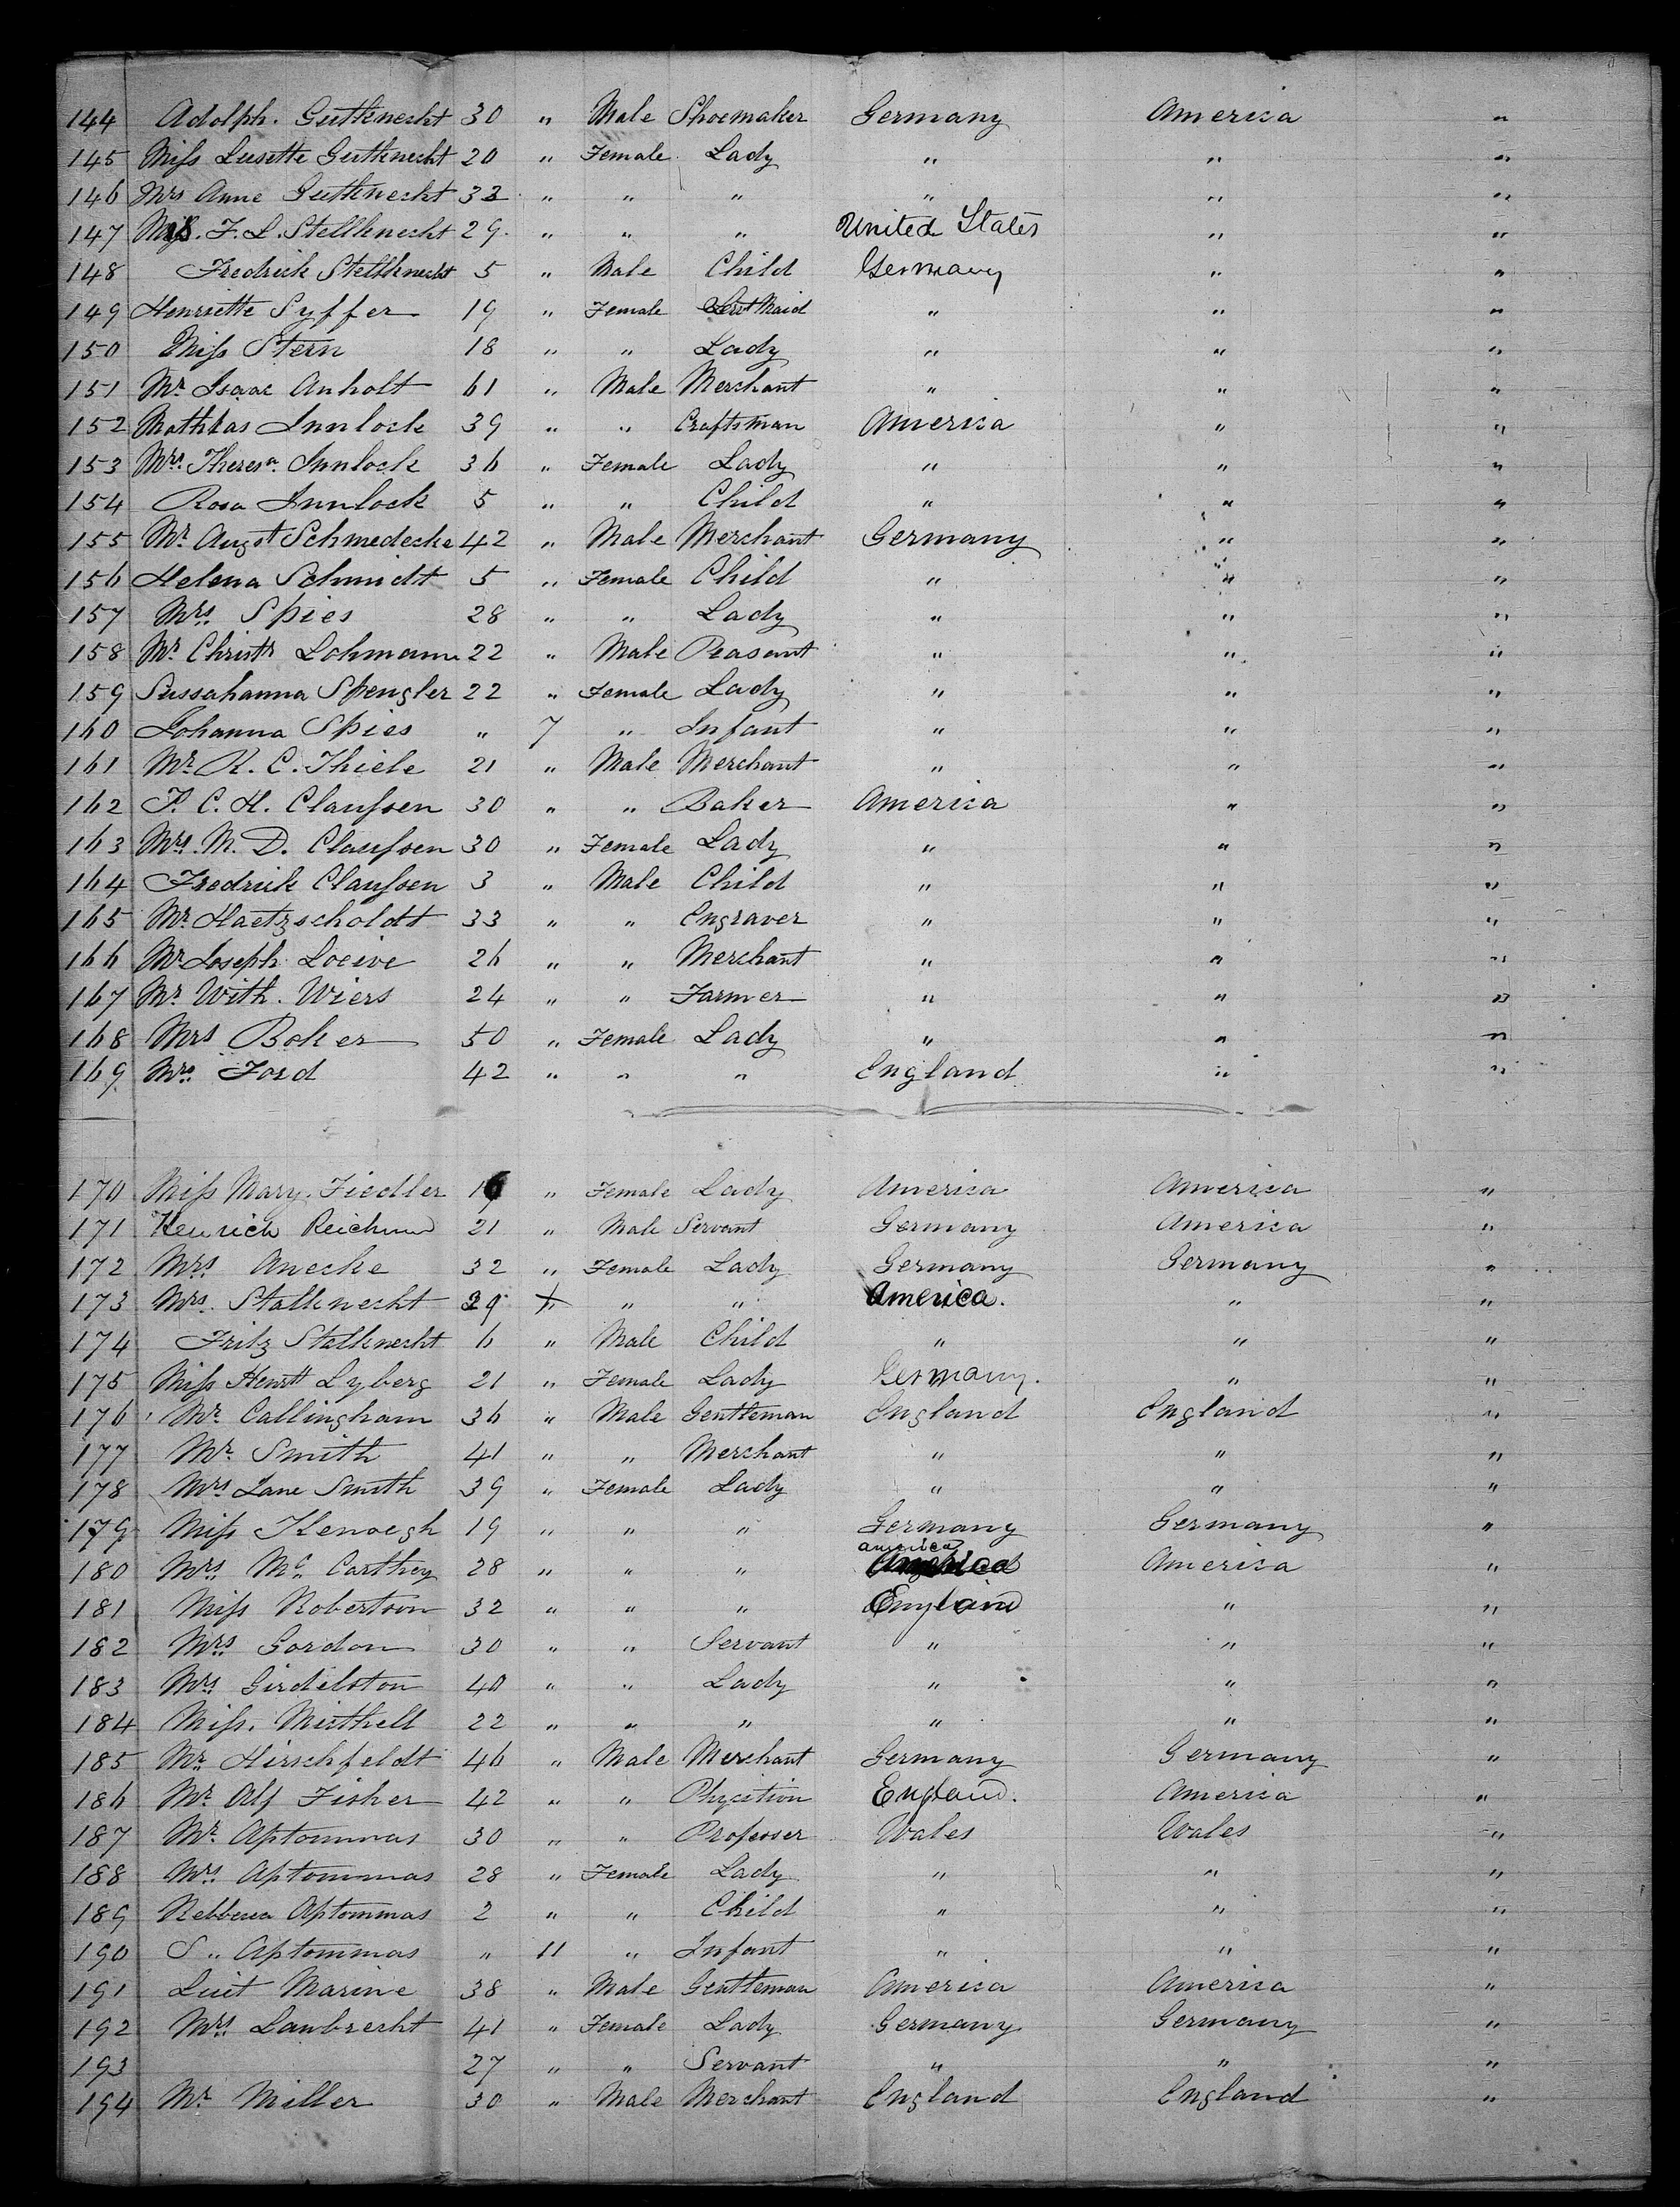 144 Adolph. Gutknecht 30 " Male Shoemaker Germany America "
145 Miss Lusette Gutknecht 20 " Female Lady " " "
146 Mrs Anne Gutknecht 33 " " " " " "
147 F. L. Stellknecht 29 " " " United States " "
148 Fredrick Stellknecht 5 " Male Child Germany " "
149 Henriette Syffer 19 " Female Maid " " "
150 Miss Stern 18 " " Lady " " "
151 Mr Isaac Anholt 61 " Male Merchant " " "
152 Mathias Innlock 39 " " Craftsman America " "
153 Mrs. Theresa Innlock 36 " Female Lady " " "
154 Rosa Innlock 5 " " Child " " "
155 Mr. Augst Schmedecke 42 " Male Merchant Germany " "
156 Helena Schmidt 5 " Female Child " " "
157 Mrs. Spies 28 " " Lady " " "
158 Mr. Christn Lohmann 22 " Male Peasant " " "
159 Sussahanna Spengler 22 " Female Lady " " "
160 Johanna Spies " 7 " Infant " " "
161 Mr. R. C. Thiele 21 " Male Merchant " " "
162 F. C. H. Claussen 30 " " Baker America " "
163 Mrs. M. D. Claussen 30 " Female Lady " " "
164 Fredrick Claussen 3 " Male Child " " "
165 Mr. Haetzscholdt 33 " " Engraver " " "
166 Mr Joseph Loeive 26 " " Merchant " " "
167 Mr. With. Wiers 24 " " Farmer " " "
168 Mrs Boker 50 " Female Lady " " "
169 Mrs. Ford 42 " " " England " "
170 Miss Mary. Fiedler " Female Lady America America "
171 Heurich 21 " Male Servant Germany America "
172 Mrs. Anecke 32 " Female Lady Germany Germany "
173 Mrs. Stalknecht 39 " " " America. " "
174 Fritz Stalknecht 6 " Male Child " " "
175 Miss Henrtt Lyberg 21 " Female Lady Germany. " "
176 Mr. Callingham 36 " Male Gentleman England England "
177 Mr. Smith 41 " " Merchant " " "
178 Mrs Jane Smith 39 " Female Lady " " "
179 Miss Kenvegh 19 " " " Germany Germany "
180 Mrs. Mc. Carthey 28 " " " America America "
181 Miss Robertson 32 " " " England " "
182 Mrs. Gordon 30 " " Servant " " "
183 Mrs. Girdelston 40 " " Lady " " "
184 Miss. Misthell 22 " " " " " "
185 Mr. Hirschfeldt 46 " Male Merchant Germany Germany "
186 Mr. Alf Fisher 42 " " Phycition England. America "
187 Mr. Aptommas 30 " " Professer Wales Wales "
188 Mrs. Aptommas 28 " Female Lady " " "
189 Rebbecca Aptommas 2 " " Child " " "
190 S " Aptommas " 11 " Infant " " "
191 Luit Marine 38 " Male Gentleman America America "
192 Mrs. Lanbrecht 41 " Female Lady Germany Germany "
193 27 " " Servant " " "
194 Mr. Miller 30 " Male Merchant England England "